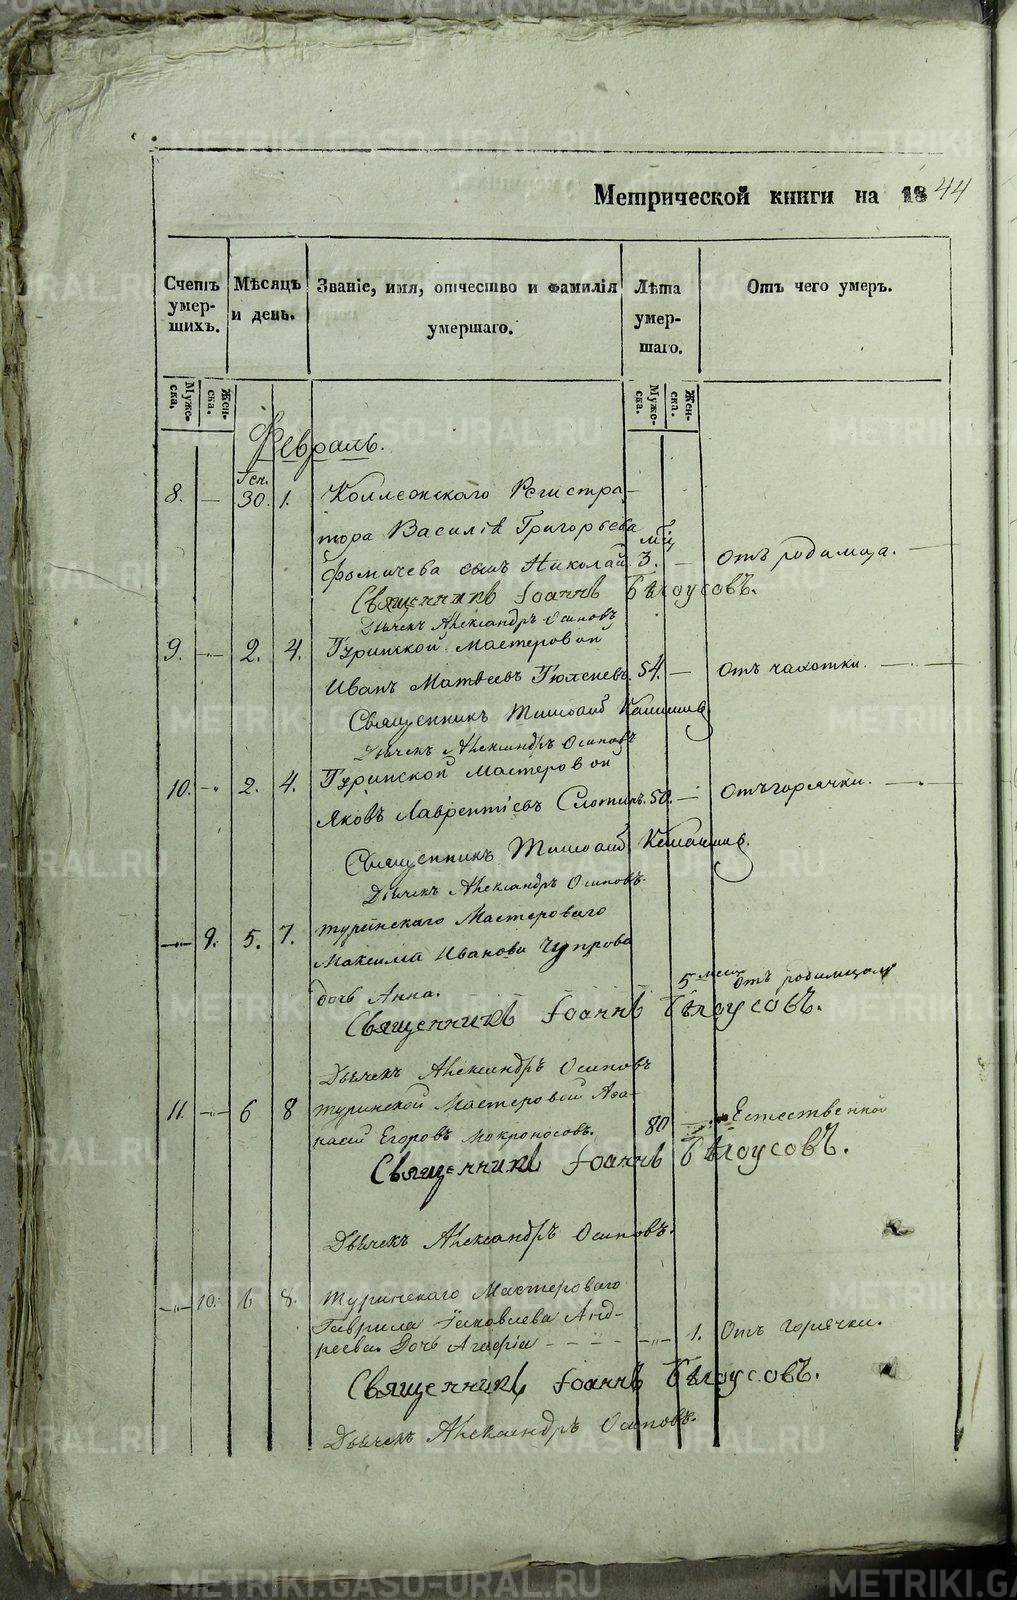 Метрической книги на 1844
Счетъ умер-шихъ.
Мѣсяцъ и день.
Званіе, имя, отчество и фамилія умершаго.
Лѣта умер-шаго.
Отъ чего умеръ.
Муже-ска.
Жен-ска.
Муже-ска.
Жен-ска.
Февраль.
Ген.
8. — 30. 1. Коллежскаго Регистра-
тора Василія Григорьева мѣц
Фомичева сынъ Николай 3. — Отъ родимца. —
Священникъ Іоаннъ Бѣлоусовъ.
Дьячекъ Александръ Осиповъ
9. — 2. 4. Туринской мастеровой
Иванъ Матвеевъ 54. — Отъ чахотки. —
Священникъ
Дьячекъ Александръ Осиповъ
10. — 2. 4. Туринской мастеровой
Яковъ Лаврентіевъ 50. — Отъ горячки. —
Священникъ
Дьячекъ Александръ Осиповъ.
— 9. 5. 7. Туринскаго Мастероваго
Максима Иванова Чупрова
дочь Анна. 5 меся отъ родимца
Священникъ Іоаннъ Бѣлоусовъ.
Дьячекъ Александръ Осиповъ
11. — 6 8 Туринской Мастеровой Афа-
насій Егоровъ Мокроносовъ. 80 — Естественной
Священникъ Іоаннъ Бѣлоусовъ.
Дьячекъ Александръ Осиповъ.
— 10. 6 8. Туринскаго Мастероваго
Гаврила Іаковлева Анд-
реева Дочь Агафія — 1. Отъ горячки.
Священникъ Іоаннъ Бѣлоусовъ.
Дьячекъ Александръ Осиповъ.
METRIKI.GASO-URAL.RU